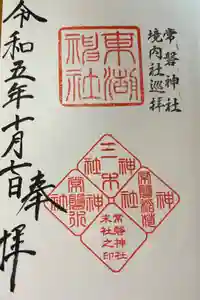 常磐神社
境内社巡拝
東湖神社
三木神社
常磐稲荷神社
常磐神社
末社之印
奉拝
令和五年十月七日